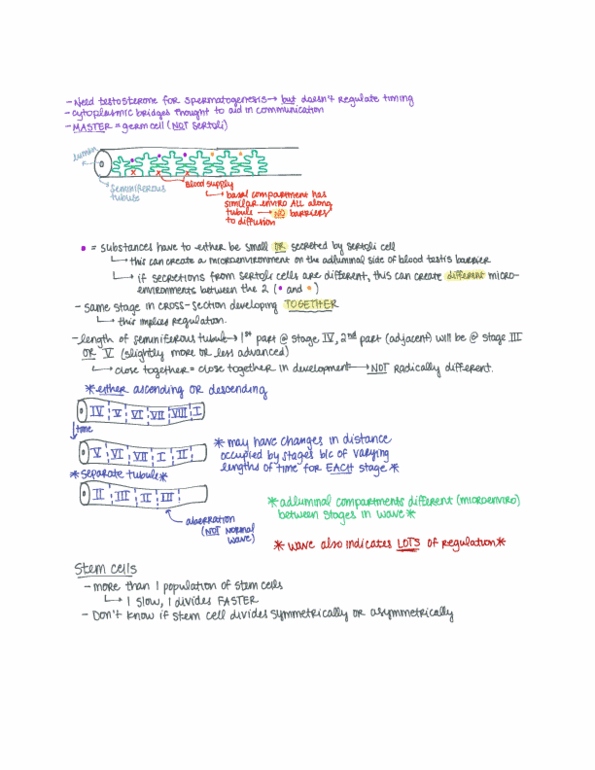 - Need testosterone for spermatogenesis → but doesn't regulate timing
- cytoplasmic bridges thought to aid in communication
- MASTER = germ cell (NOT sertoli)
lumen
seminiferous
tubule
Blood supply
↳ basal compartment has
similar enviro ALL along
tubule → NO barriers
to diffusion
• = substances have to either be small OR secreted by sertoli cell
↳ this can create a microenvironment on the adluminal side of blood testis barrier
↳ if secretions from sertoli cells are different, this can create different micro-
environments between the 2 (• and •)
- same stage in cross-section developing TOGETHER
↳ this implies regulation.
- length of seminiferous tubule → 1st part @ stage IV, 2nd part (adjacent) will be @ stage III
OR V (slightly more or less advanced)
↳ close together = close together in development → NOT radically different.
*either ascending or descending
IV V VI VII VIII I
↓ time
V VI VII I II
* may have changes in distance
occupied by stages b/c of varying
lengths of time for EACH stage *
* separate tubule *
II III II III
aberration
(NOT normal
wave)
* adluminal compartments different (microenviro)
between stages in wave *
* wave also indicates LOTS of regulation *
Stem cells
- more than 1 population of stem cells
↳ 1 slow, 1 divides FASTER
- Don't know if stem cell divides symmetrically or asymmetrically